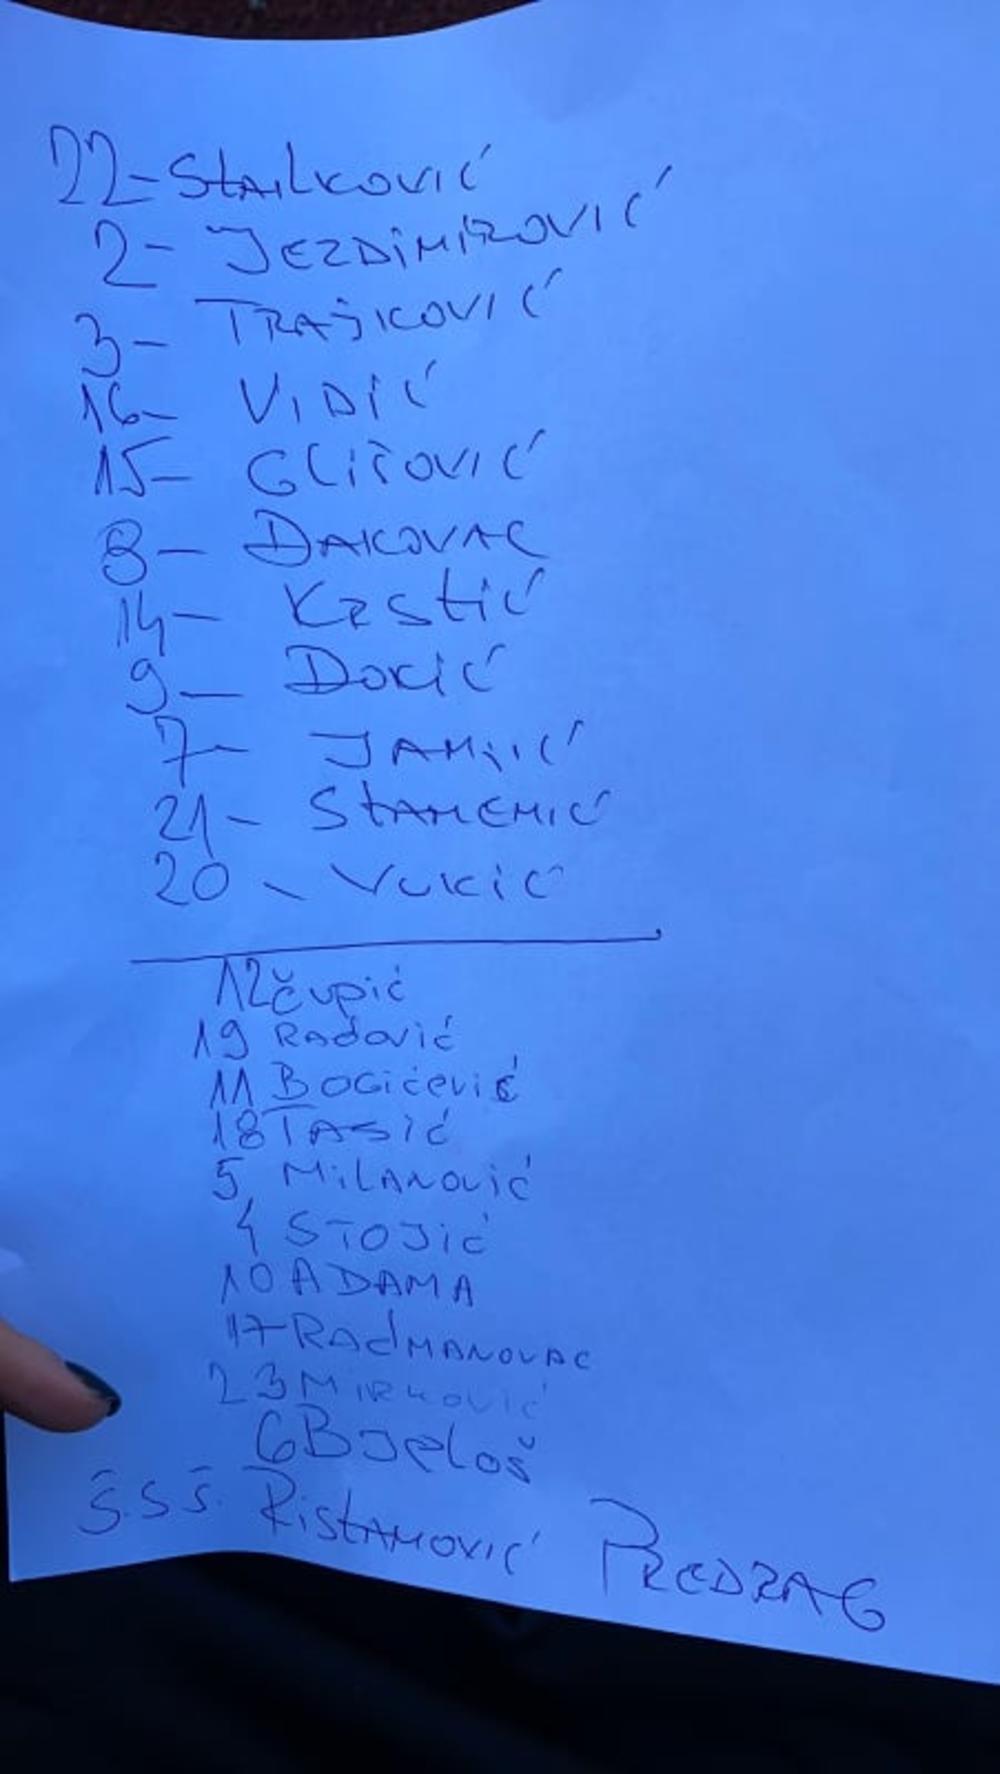 22-Stanković
2- JEZDIMIROVIĆ
3- TRAJKOVIĆ
16- VIDIĆ
15- GLIŠOVIĆ
8- ĐAKOVAC
14- KRStić
9- ĐOKIĆ
7- JANJIĆ
21- StAMENIĆ
20 - VUKIĆ
12 Čupić
19 RADOVIĆ
11 BOGIĆEVIĆ
18 TASIĆ
5, MILANOVIĆ
4 STOJIĆ
10 ADAMA
17-RADMANOVAC
23 MIRKOVIĆ
6 BJeloš
Š.S Š. RiStANOVIĆ PREDRAG